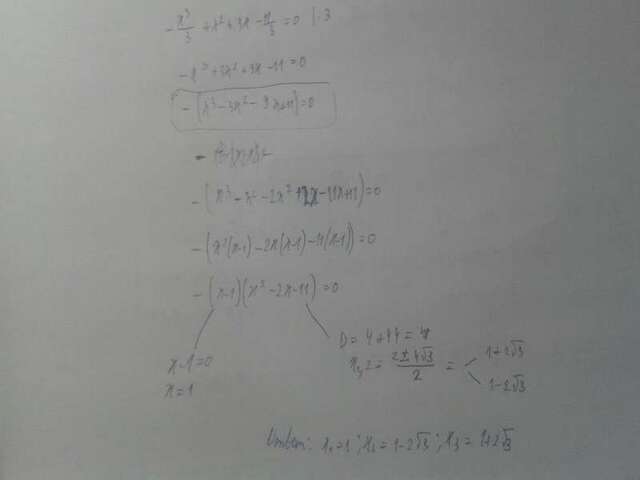 -x³/3 + x² + 3x - 11/3 = 0 | ·3
-x³ + 3x² + 9x - 11 = 0
-(x³ - 3x² - 9x + 11) = 0
-(x³ - x² - 2x² + 2x - 11x + 11) = 0
-(x²(x-1) - 2x(x-1) - 11(x-1)) = 0
-(x-1)(x² - 2x - 11) = 0
x - 1 = 0
x = 1
D = 4 + 44 =
= (2 ± 4√3)/2 =
1 + 2√3
1 - 2√3
x₁ = 1 ; x₂ = 1 - 2√3 ; x₃ = 1 + 2√3